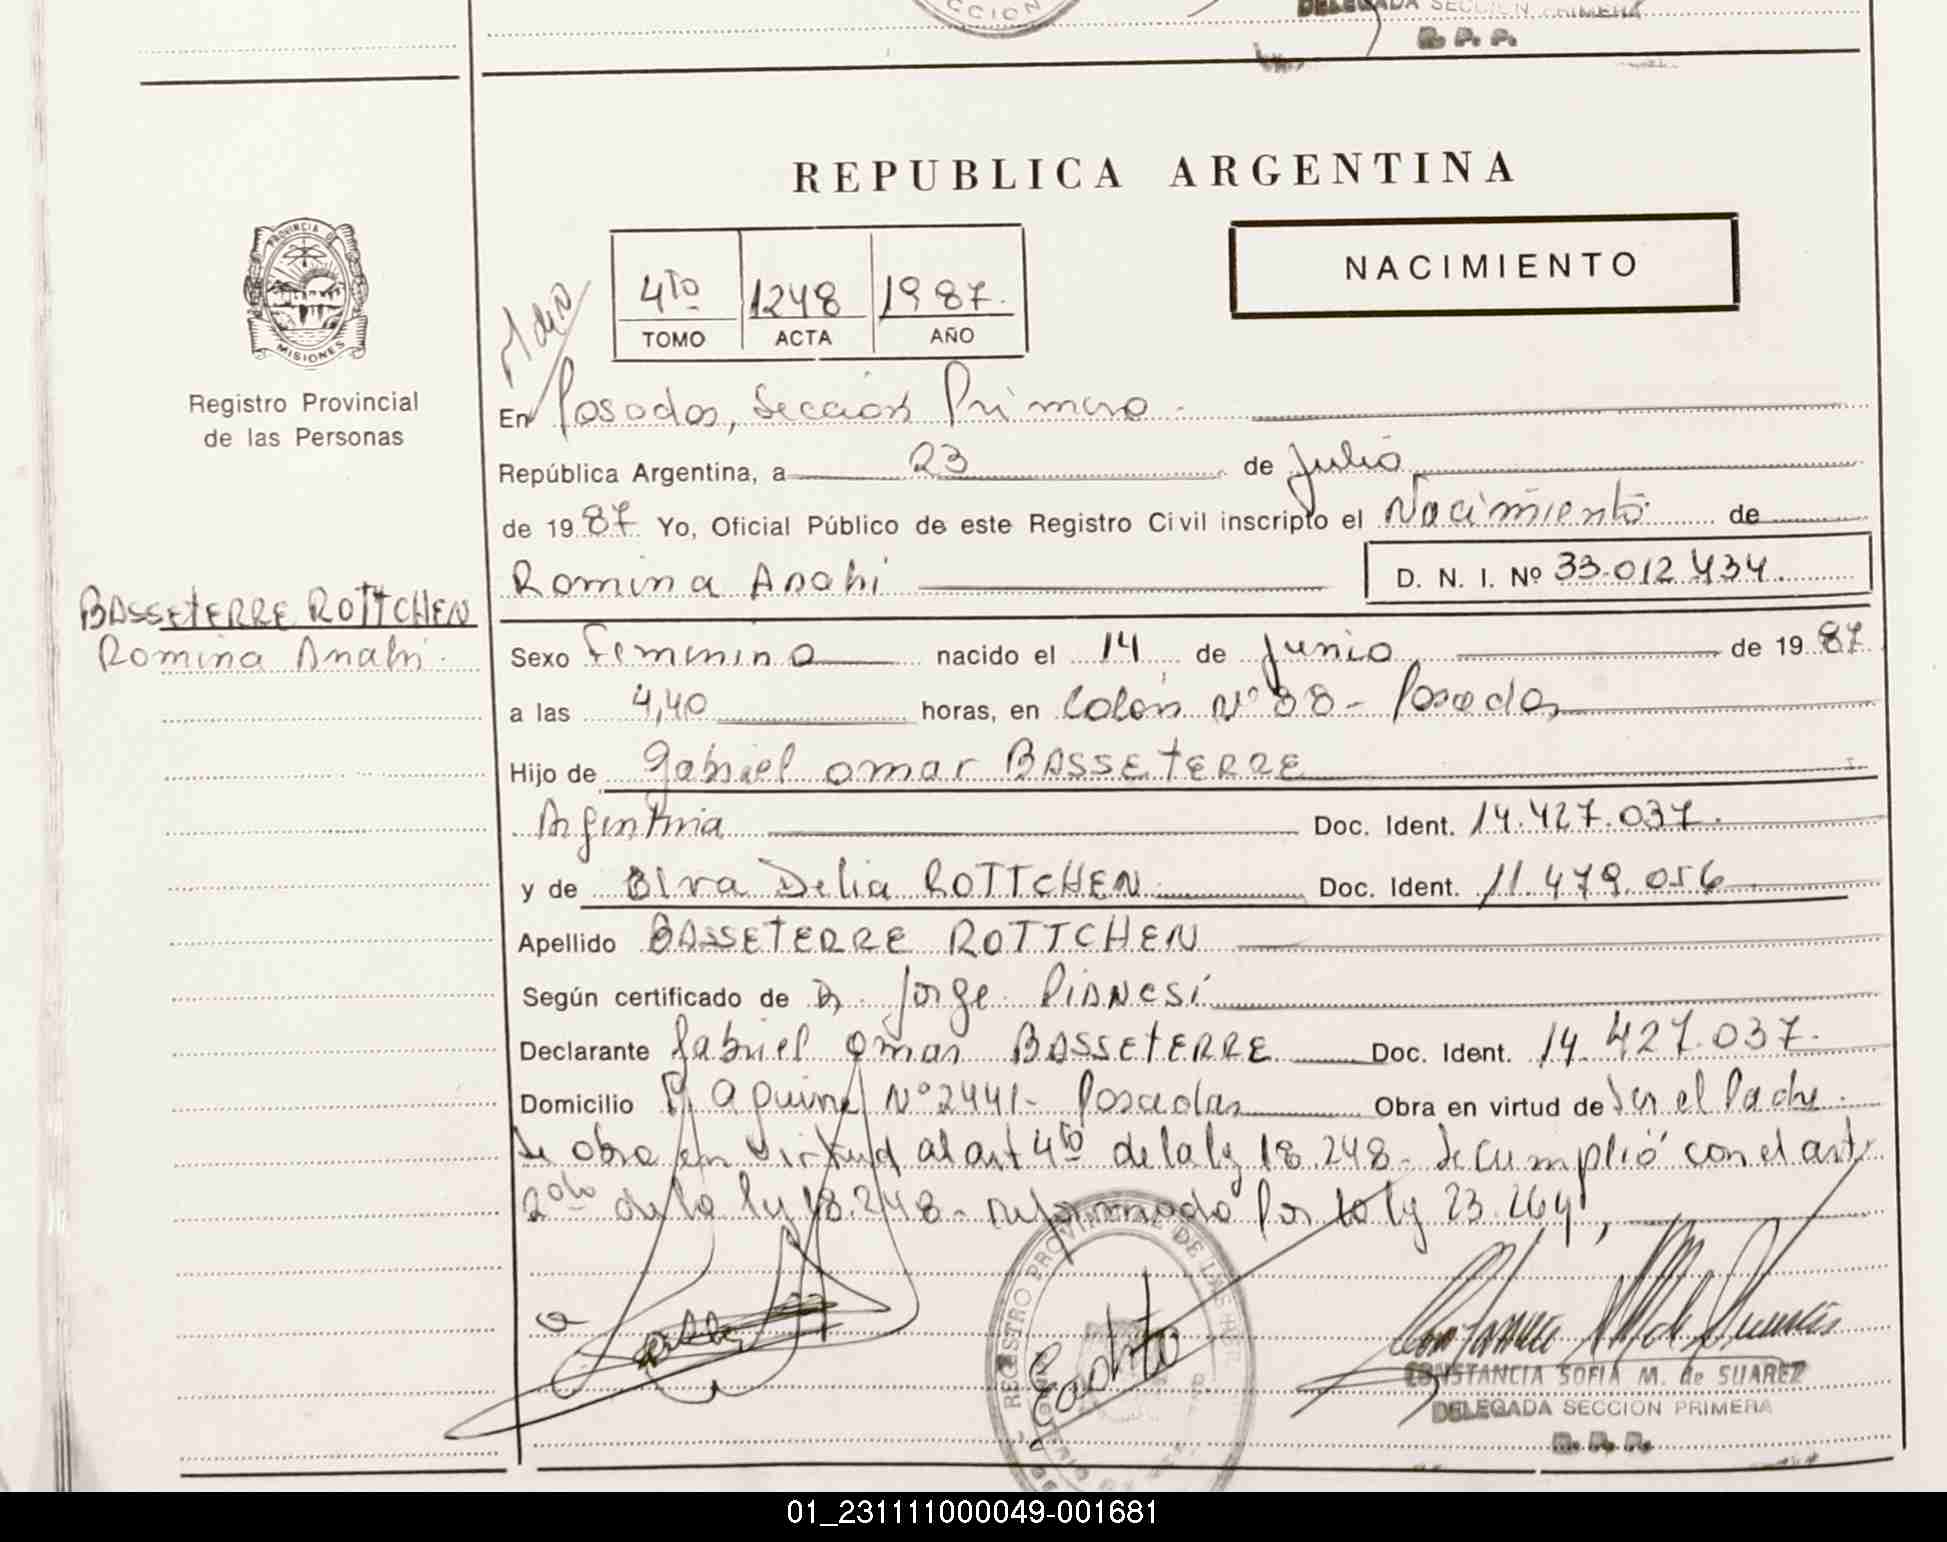 CCION
DELEGADA SECCION PRIMERA
R. P. P.
REPUBLICA ARGENTINA
PROVINCIA DE
MISIONES
Registro Provincial
de las Personas
4to 1248 1987.
TOMO ACTA AÑO
NACIMIENTO
En Posadas, Sección Primera.
República Argentina, a 23 de Julio
de 1987 Yo, Oficial Público de este Registro Civil inscripto el Nacimiento de
Romina Anahi D. N. I. Nº 33.012.434.
BASSETERRE ROTTCHEN
Romina Anahi.
Sexo Femenino nacido el 14 de Junio de 1987
a las 4,40 horas, en Colón Nº 88 - Posadas
Hijo de Gabriel Omar BASSETERRE
Argentina Doc. Ident. 14.427.037.
y de Elva Delia ROTTCHEN Doc. Ident. 11.479.056
Apellido BASSETERRE ROTTCHEN
Según certificado de Dr. Jorge Pianesi
Declarante Gabriel Omar BASSETERRE Doc. Ident. 14.427.037.
Domicilio Aguirre Nº 2441- Posadas Obra en virtud de Ser el Padre.
Se obra en virtud al art 4to de la ley 18.248 - Se cumplió con el art
2do de la ley 18.248 - reformado Por la ley 23.264,
REGISTRO PROVINCIAL DE LAS PER
CONSTANCIA SOFIA M. de SUAREZ
DELEGADA SECCION PRIMERA
R. P. P.
01_231111000049-001681